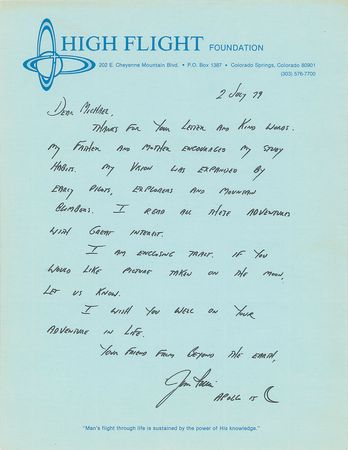 HIGH FLIGHT FOUNDATION
202 E. Cheyenne Mountain Blvd. • P.O. Box 1387 • Colorado Springs, Colorado 80901
(303) 576-7700
2 July 79
Dear Michael,
Thanks for your letter and kind words.
My Father and Mother encouraged my study
habits. My vision was expanded by
early pilots, explorers and mountain
climbers. I read all these adventures
with great interest.
I am enclosing tract. If you
would like picture taken on the moon,
let us know.
I wish you well on your
adventure in life.
Your friend from beyond the earth,
Jim Irwin
Apollo 15
"Man's flight through life is sustained by the power of His knowledge."